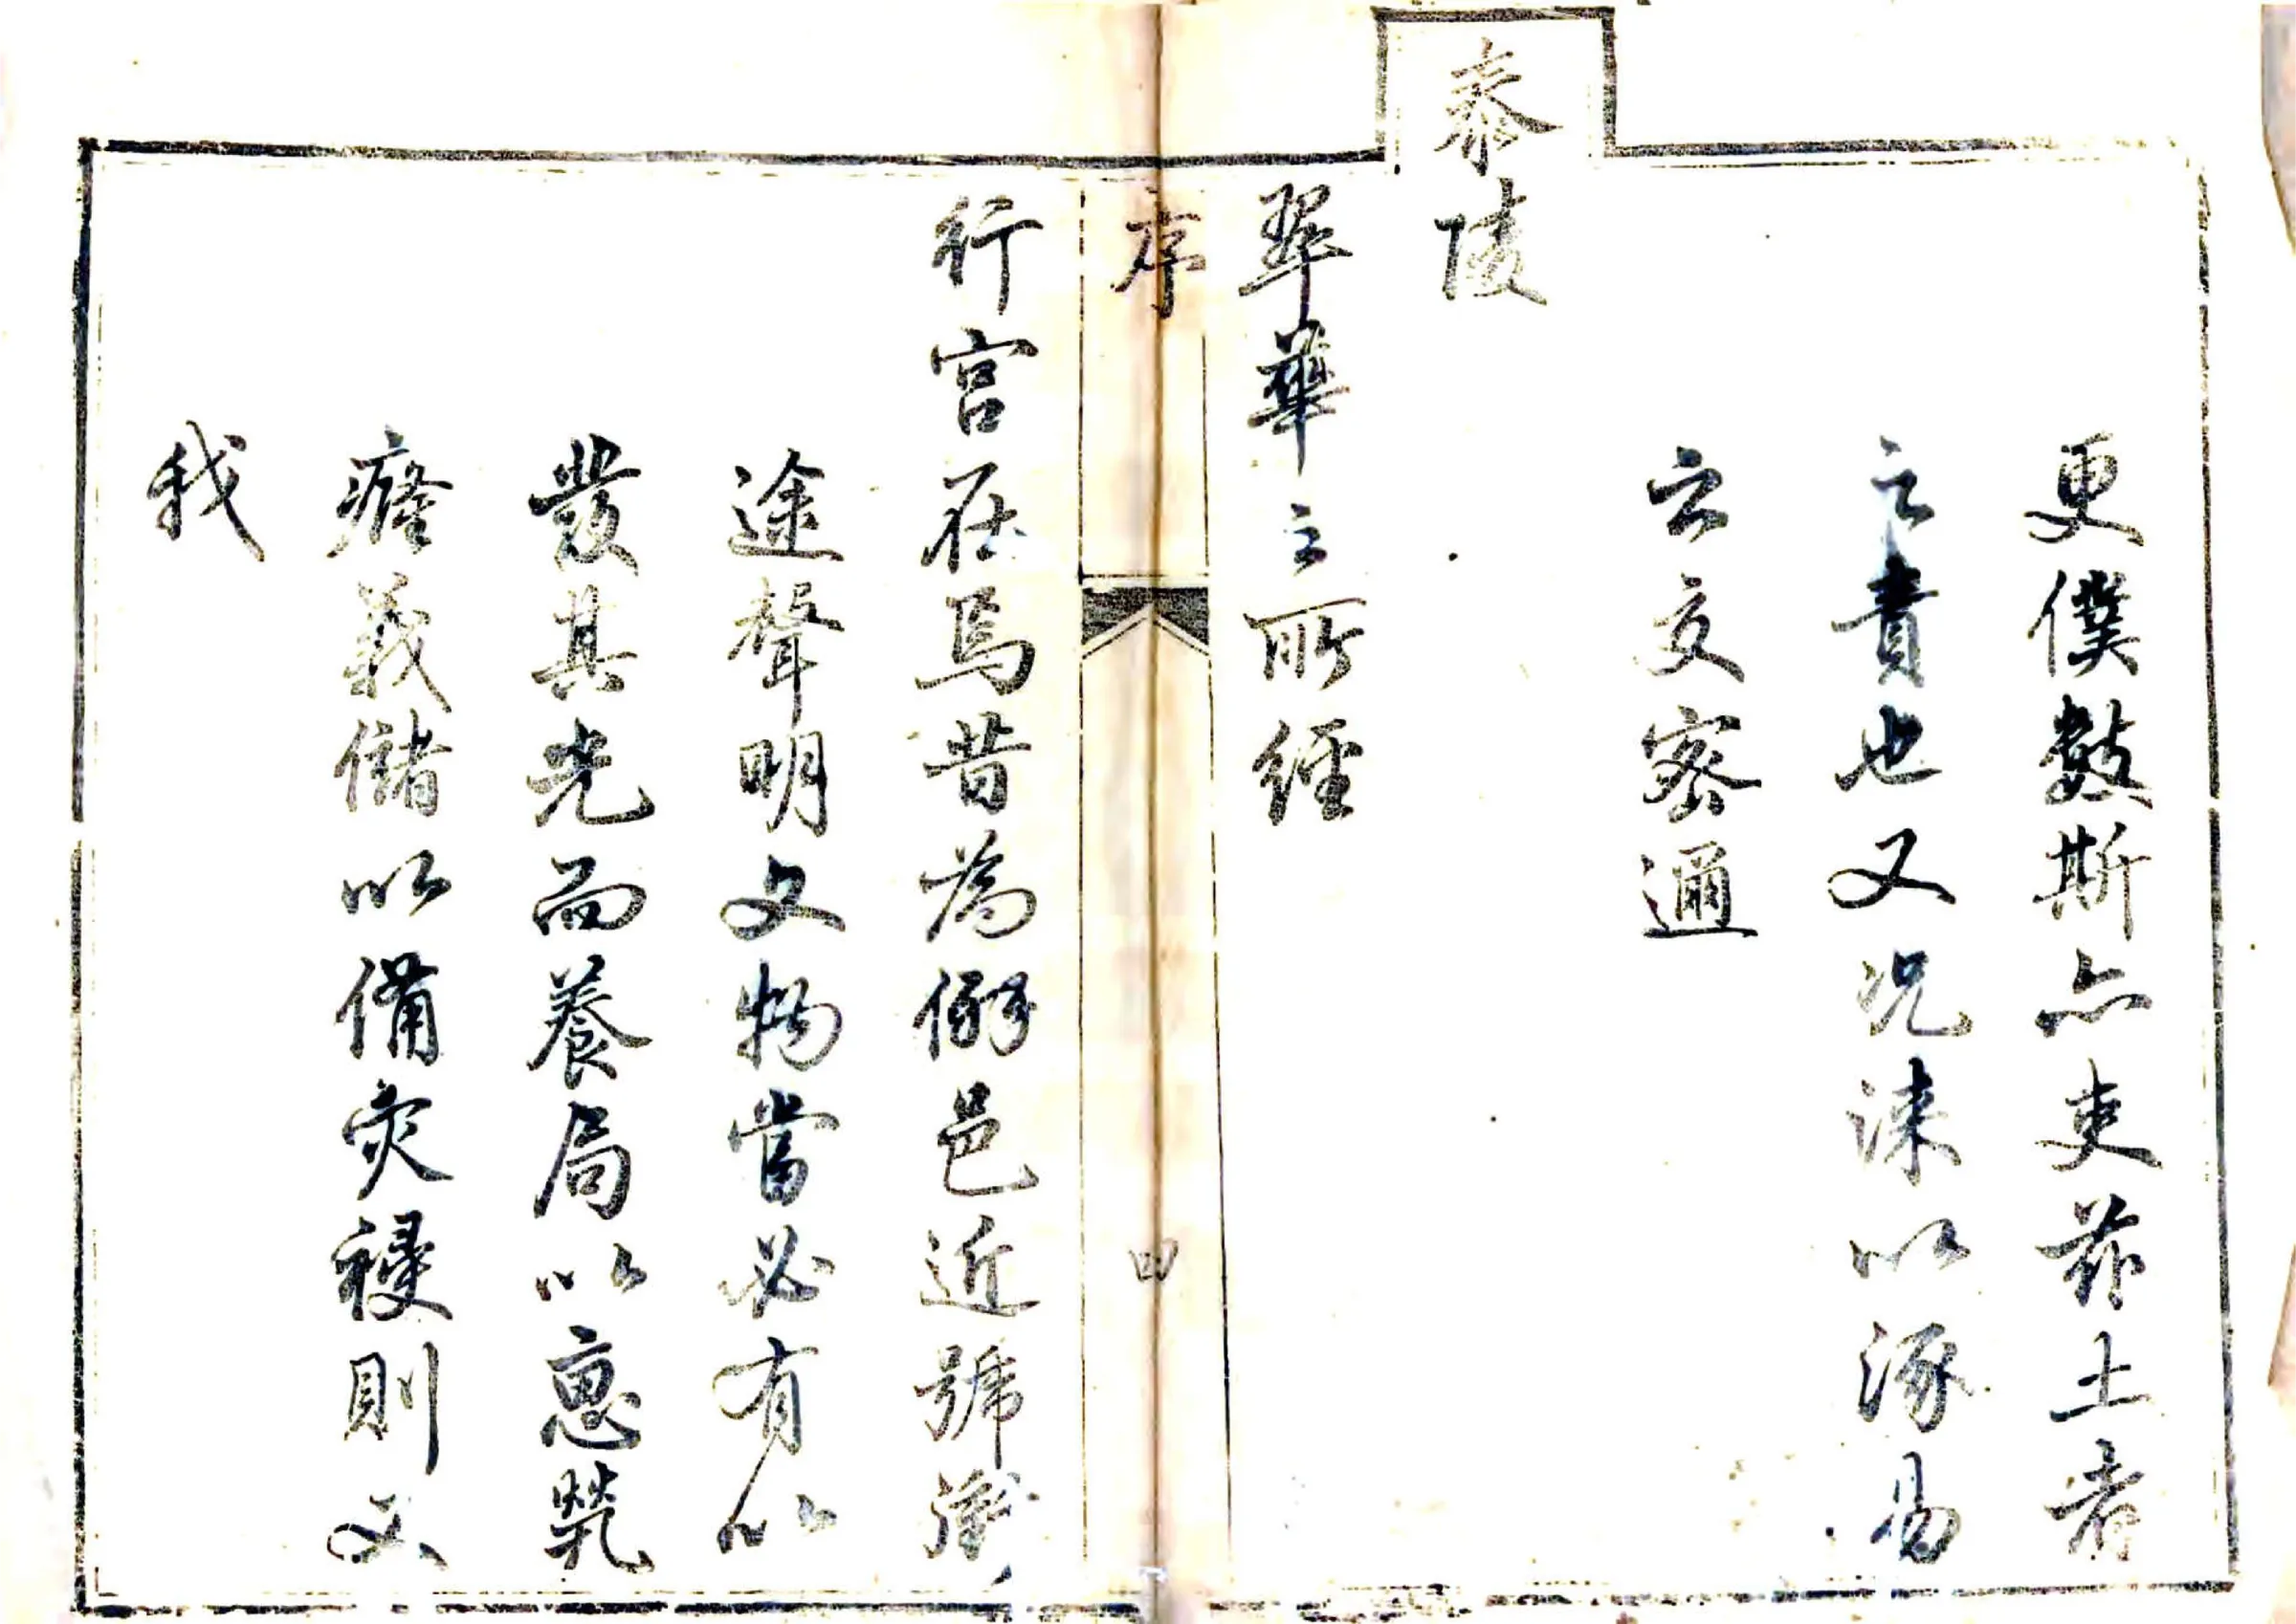 更僕數斯亦吏茲土者
之責也又況淶以涿易
之交密邇
泰陵
翠華之所經
序
四
行宮在焉昔為僻邑近號
途聲明文物當必有以
發其光而養局以惠煢
義儲以備灾祲則又
我